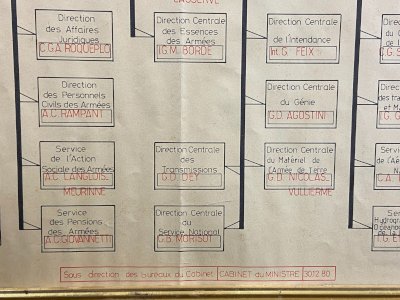 CASSERVE
Direction
des Affaires
Juridiques
C.G.A. ROQUEPLO
Direction Centrale
des Essences
des Armées
I.G.M. BORDE
Direction Centrale
de l'Intendance
Int. G. FEIX
Direction
des Personnels
Civils des Armées
A.C. RAMPANT
Direction Centrale
du Génie
G.D. AGOSTINI
Service
de l'Action
Sociale des Armées
A.C. LANGLOIS
MEURINNE
Direction Centrale
des
Transmissions
G.D. DEY
Direction Centrale
du Matériel de
l'Armée de Terre
G.D. NICOLAS
VULLIERME
Service
des Pensions
des Armées
A.C. GIOVANNETTI
Direction Centrale
du
Service National
G.D. MORISOT
Service
Hydrogra
Océanog
de la
Sous direction des Bureaux du Cabinet CABINET du MINISTRE 30.12.80